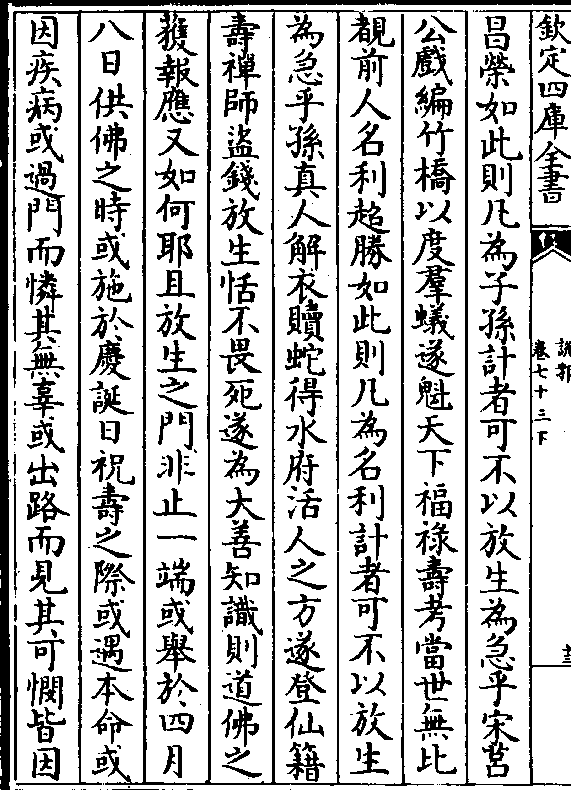 欽定四庫全書
說郛
卷七十三下
昌榮如此則凡為子孫計者可不以放生為急乎宋莒
公戲編竹橋以度羣蟻遂魁天下福祿壽考當世無比
覩前人名利超勝如此則凡為名利計者可不以放生
為急乎孫真人解衣贖蛇得水府活人之方遂登仙籍
壽禪師盜錢放生恬不畏死遂為大善知識則道佛之
獲報應又如何耶且放生之門非止一端或舉於四月
八日供佛之時或施於慶誕日祝壽之際或遇本命或
因疾病或過門而憐其無辜或出路而見其可憫皆因